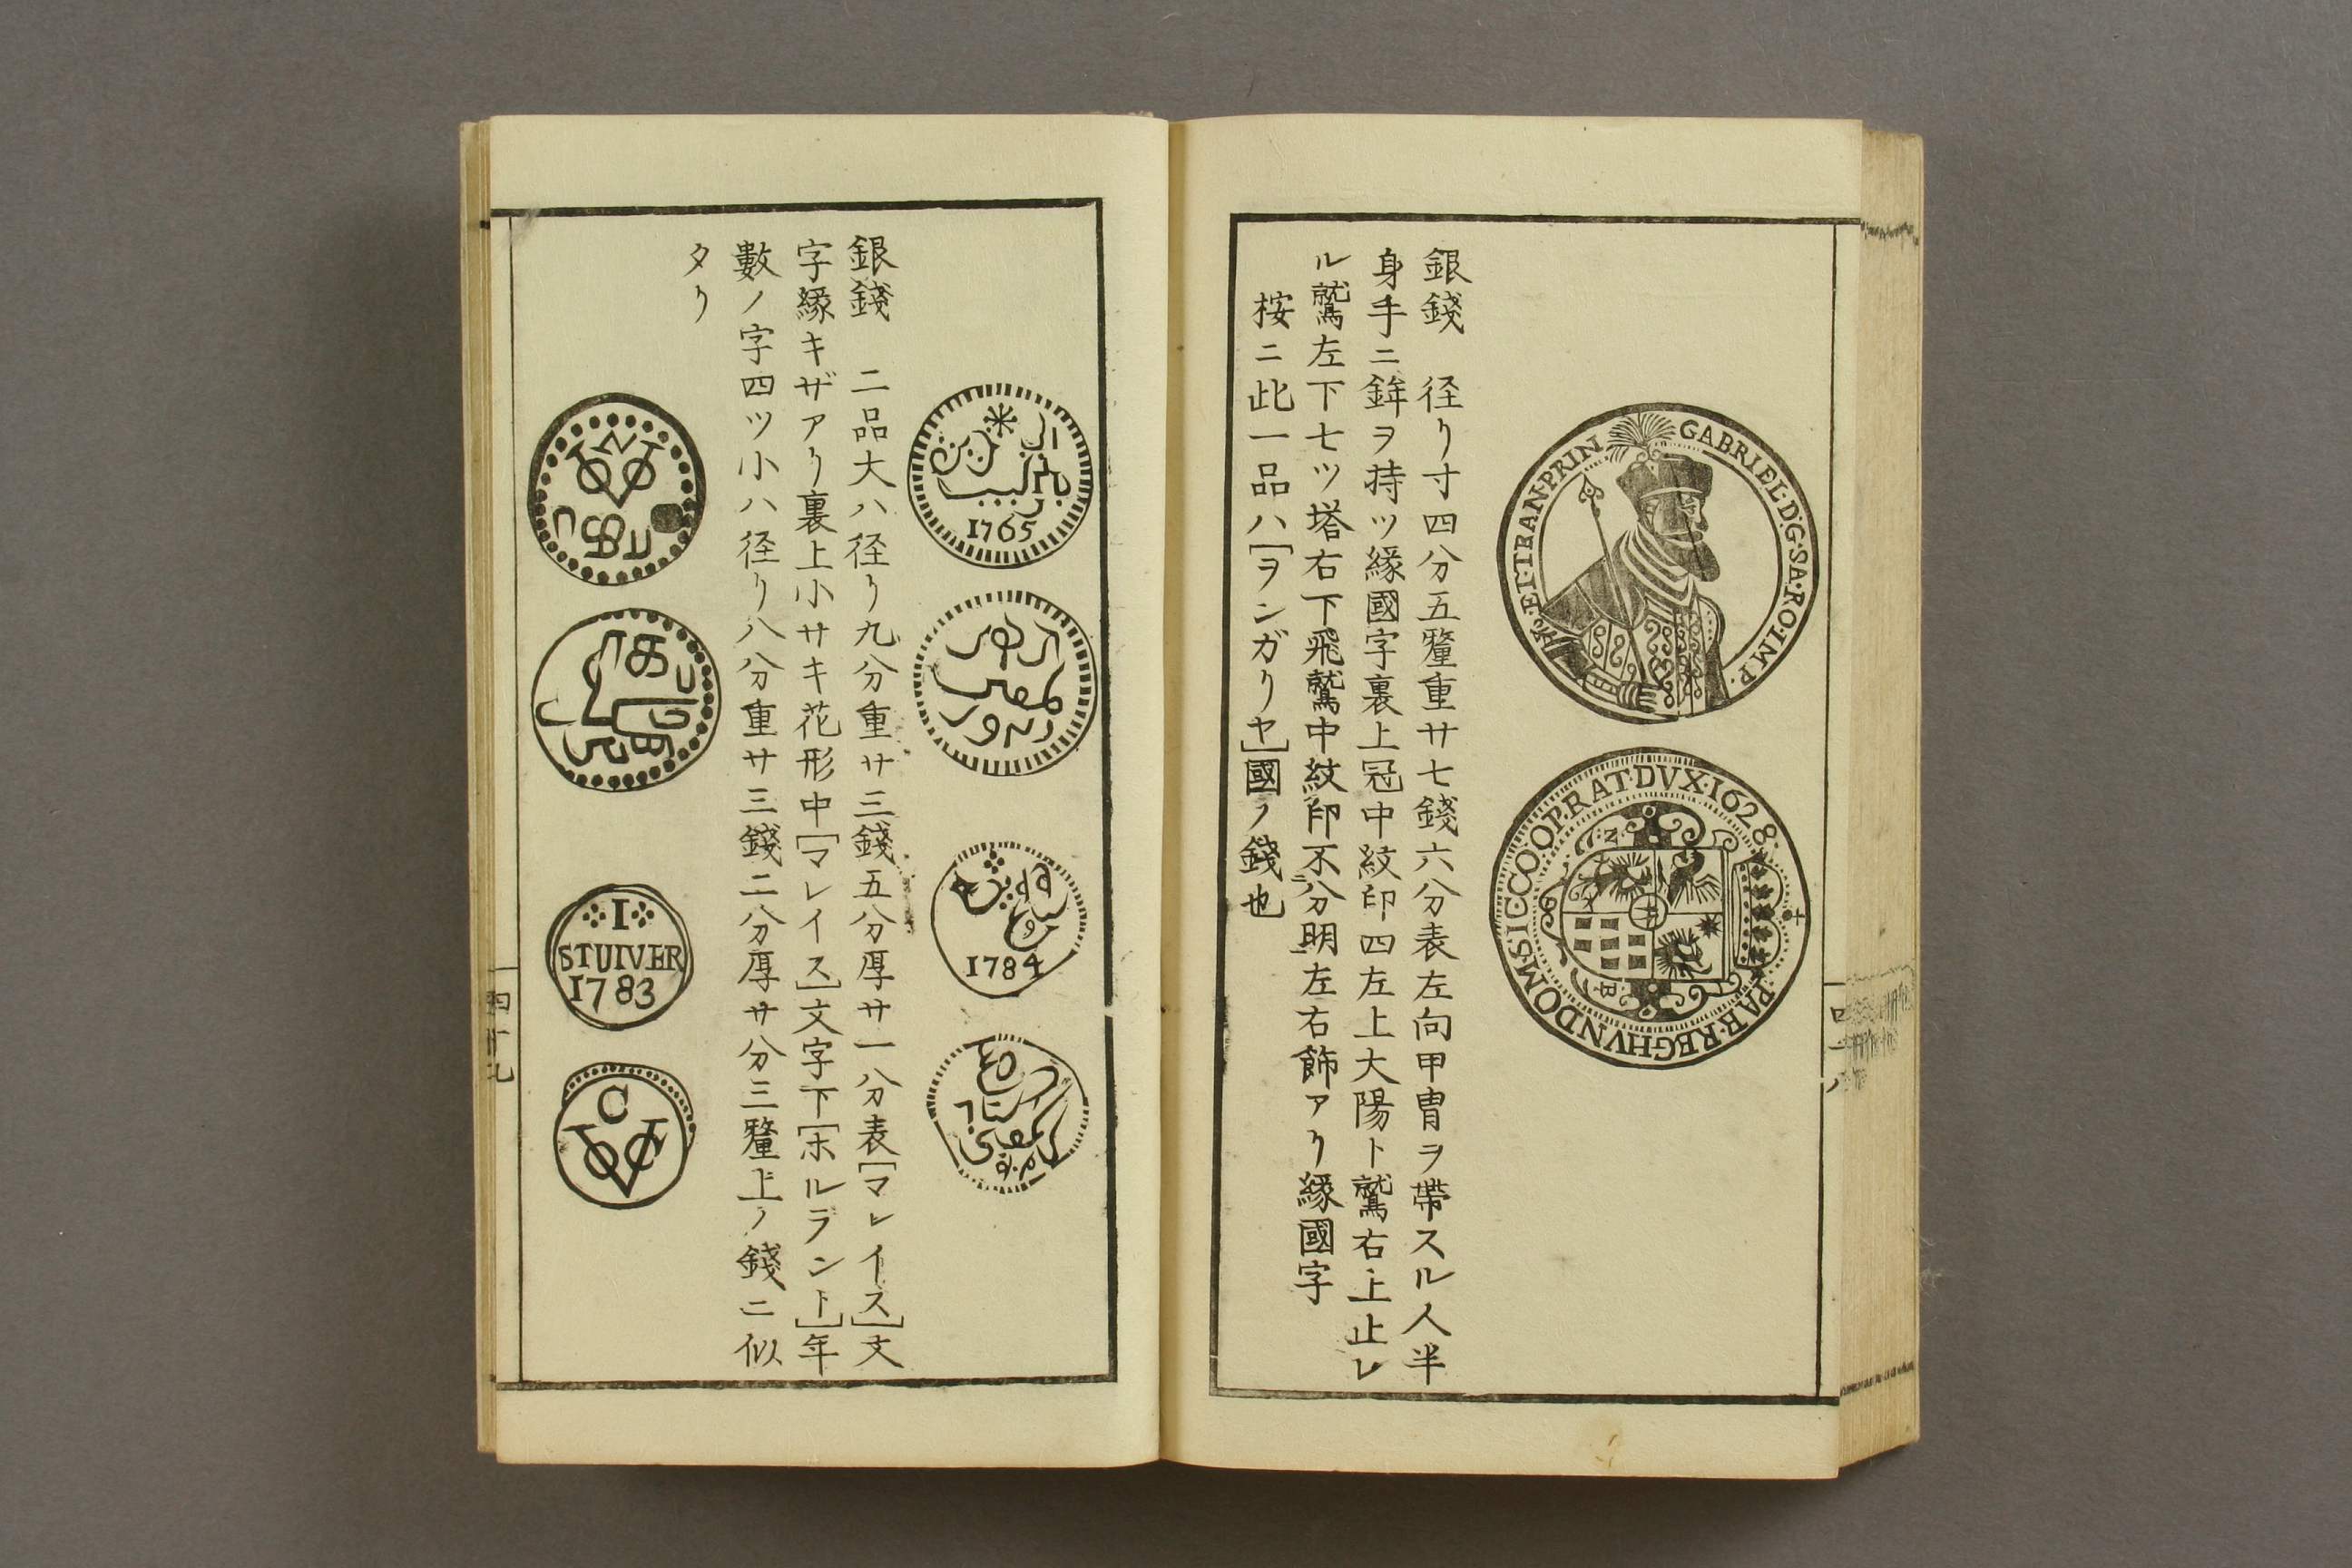 GABRIEL·D:G·SA·RO·IMP·
ET·TRAN·PRIN
PAB·REGHVNDOM·SIC·COOP·RAT·DVX·1628·
N
B
銀錢 径リ寸四分五釐重サ七錢六分表左向甲冑ヲ帶スル人半
身手ニ鉾ヲ持ツ緣國字裏上冠中紋印四左上大陽ト鷲右上止レ
ル鷲左下七ツ塔右下飛鷲中紋印不分明左右飾アリ緣國字
桉ニ此一品ハ[ヲンガリヤ]國ノ錢也
1765
1784
銀錢 二品大ハ径リ九分重サ三錢五分厚サ一分表[マレイス]文
字緣キザアリ裏上小サキ花形中[マレイス]文字下[ホルラント]年
數ノ字四ツ小ハ径リ八分重サ三錢二分厚サ分三釐上ノ錢ニ似
タリ
I
STUIVER
1783
C
VOC